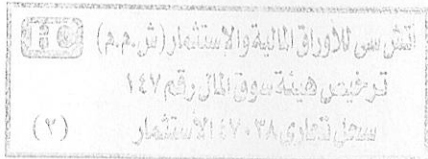 اتش سى للاوراق المالية والاستثمار (ش.م.م) HC
ترخيص هيئة سوق المال رقم ١٤٧
سجل تجارى ٤٧٠٣٨ الاستثمار
(٢)